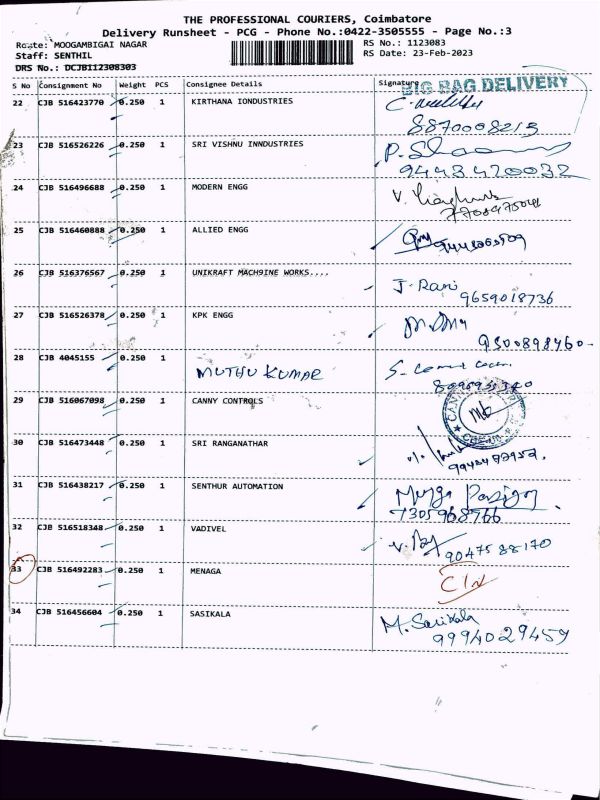 THE PROFESSIONAL COURIERS, Coimbatore
Delivery Runsheet - PCG - Phone No.:0422-3505555 - Page No.:3
Route: MOOGAMBIGAI NAGAR RS No.: 1123083
Staff: SENTHIL RS Date: 23-Feb-2023
DRS No.: DCJB112308303
S No Consignment No Weight PCS Consignee Details Signature
BIG BAG DELIVERY
22 CJB 516423770 0.250 1 KIRTHANA IONDUSTRIES
8870008215
23 CJB 516526226 0.250 1 SRI VISHNU INNDUSTRIES
9443420032
24 CJB 516496688 0.250 1 MODERN ENGG
25 CJB 516460888 0.250 1 ALLIED ENGG
26 CJB 516376567 0.250 1 UNIKRAFT MACH9INE WORKS.... J. Rani
9659018736
27 CJB 516526378 0.250 1 KPK ENGG
9500898460
28 CJB 4045155 0.250 1 MUTHU KUMAR
29 CJB 516067098 0.250 1 CANNY CONTROLS
30 CJB 516473448 0.250 1 SRI RANGANATHAR
31 CJB 516438217 0.250 1 SENTHUR AUTOMATION
7305968766
32 CJB 516518348 0.250 1 VADIVEL
9047588170
33 CJB 516492283 0.250 1 MENAGA
34 CJB 516456604 0.250 1 SASIKALA M. Sasikala
9994029459